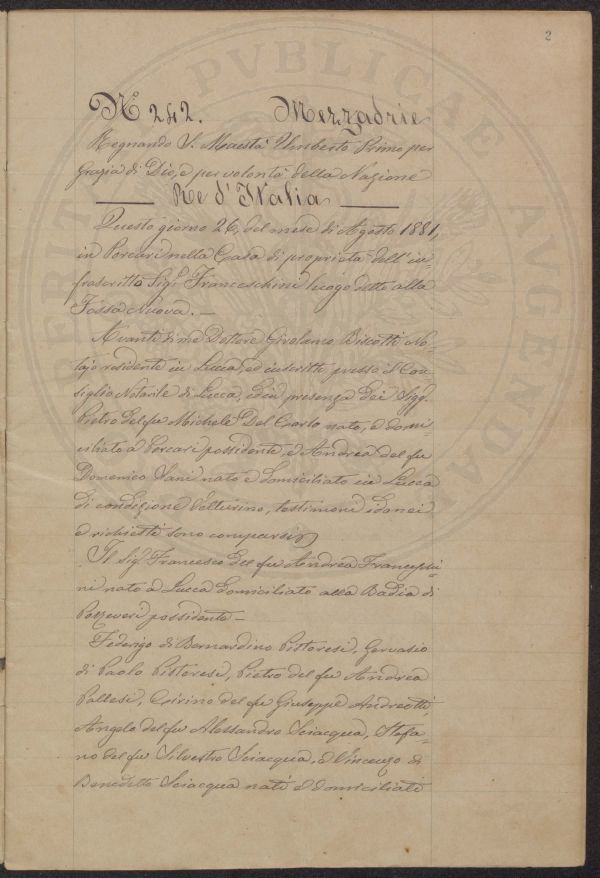 2
PVBLICAE
AVGENDAE
N 242. Mezzadrie
Regnando S. Maestà Umberto Primo per
Grazia di Dio, e per volontà della Nazione
Re d'Italia
Questo giorno 26, del mese di Agosto 1881,
in Porcari nella Casa di proprietà dell'in-
frascritto Sig.r Franceschini luogo detto alla
Fossa Nuova. —
Avanti di me Dottore Girolamo Biscotti No-
tajo residente in Lucca, ed inscritto presso il Con-
siglio Notarile di Lucca, ed in presenza dei Sigg.
Pietro del fu Michele Del Carlo nato, e domi-
ciliato a Porcari possidente, e Andrea del fu
Domenico Vani nato e domiciliato in Lucca
di condizione Vetturino, testimoni idonei
e richiesti sono comparsi
Il Sig.r Francesco del fu Andrea Franceschi-
ni nato a Lucca domiciliato alla Badia di
Pozzeveri possidente —
Federigo di Bernardino Pistoresi, Gervasio
di Paolo Pistoresi, Pietro del fu Andrea
del fu Giuseppe Andreotti,
Angelo del fu Alessandro Sciacqua, Stefa-
no del fu Silvestro Sciacqua, e Vincenzo di
Benedetto Sciacqua nati e domiciliati